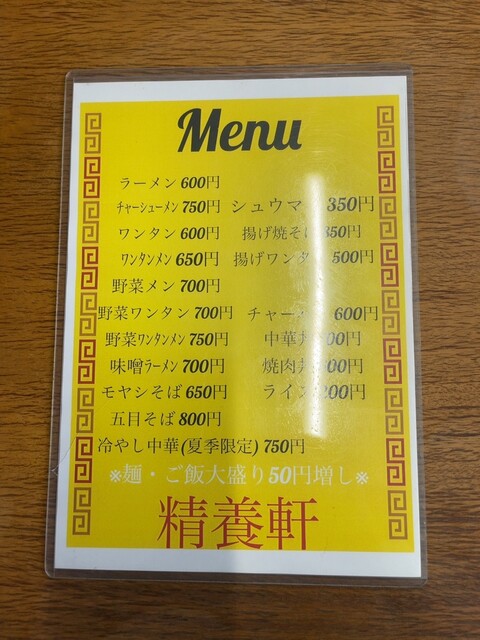 Menu
ラーメン 600円
チャーシューメン 750円
ワンタン 600円
ワンタンメン 650円
野菜メン 700円
野菜ワンタン 700円
野菜ワンタンメン 750円
味噌ラーメン 700円
モヤシそば 650円
五目そば 800円
冷やし中華(夏季限定) 750円
シュウマ 350円
揚げ焼そ 50円
揚げワンタ 500円
チャー 600円
中華 00円
焼肉 00円
ライ 200円
※麺・ご飯大盛り50円増し※
精養軒